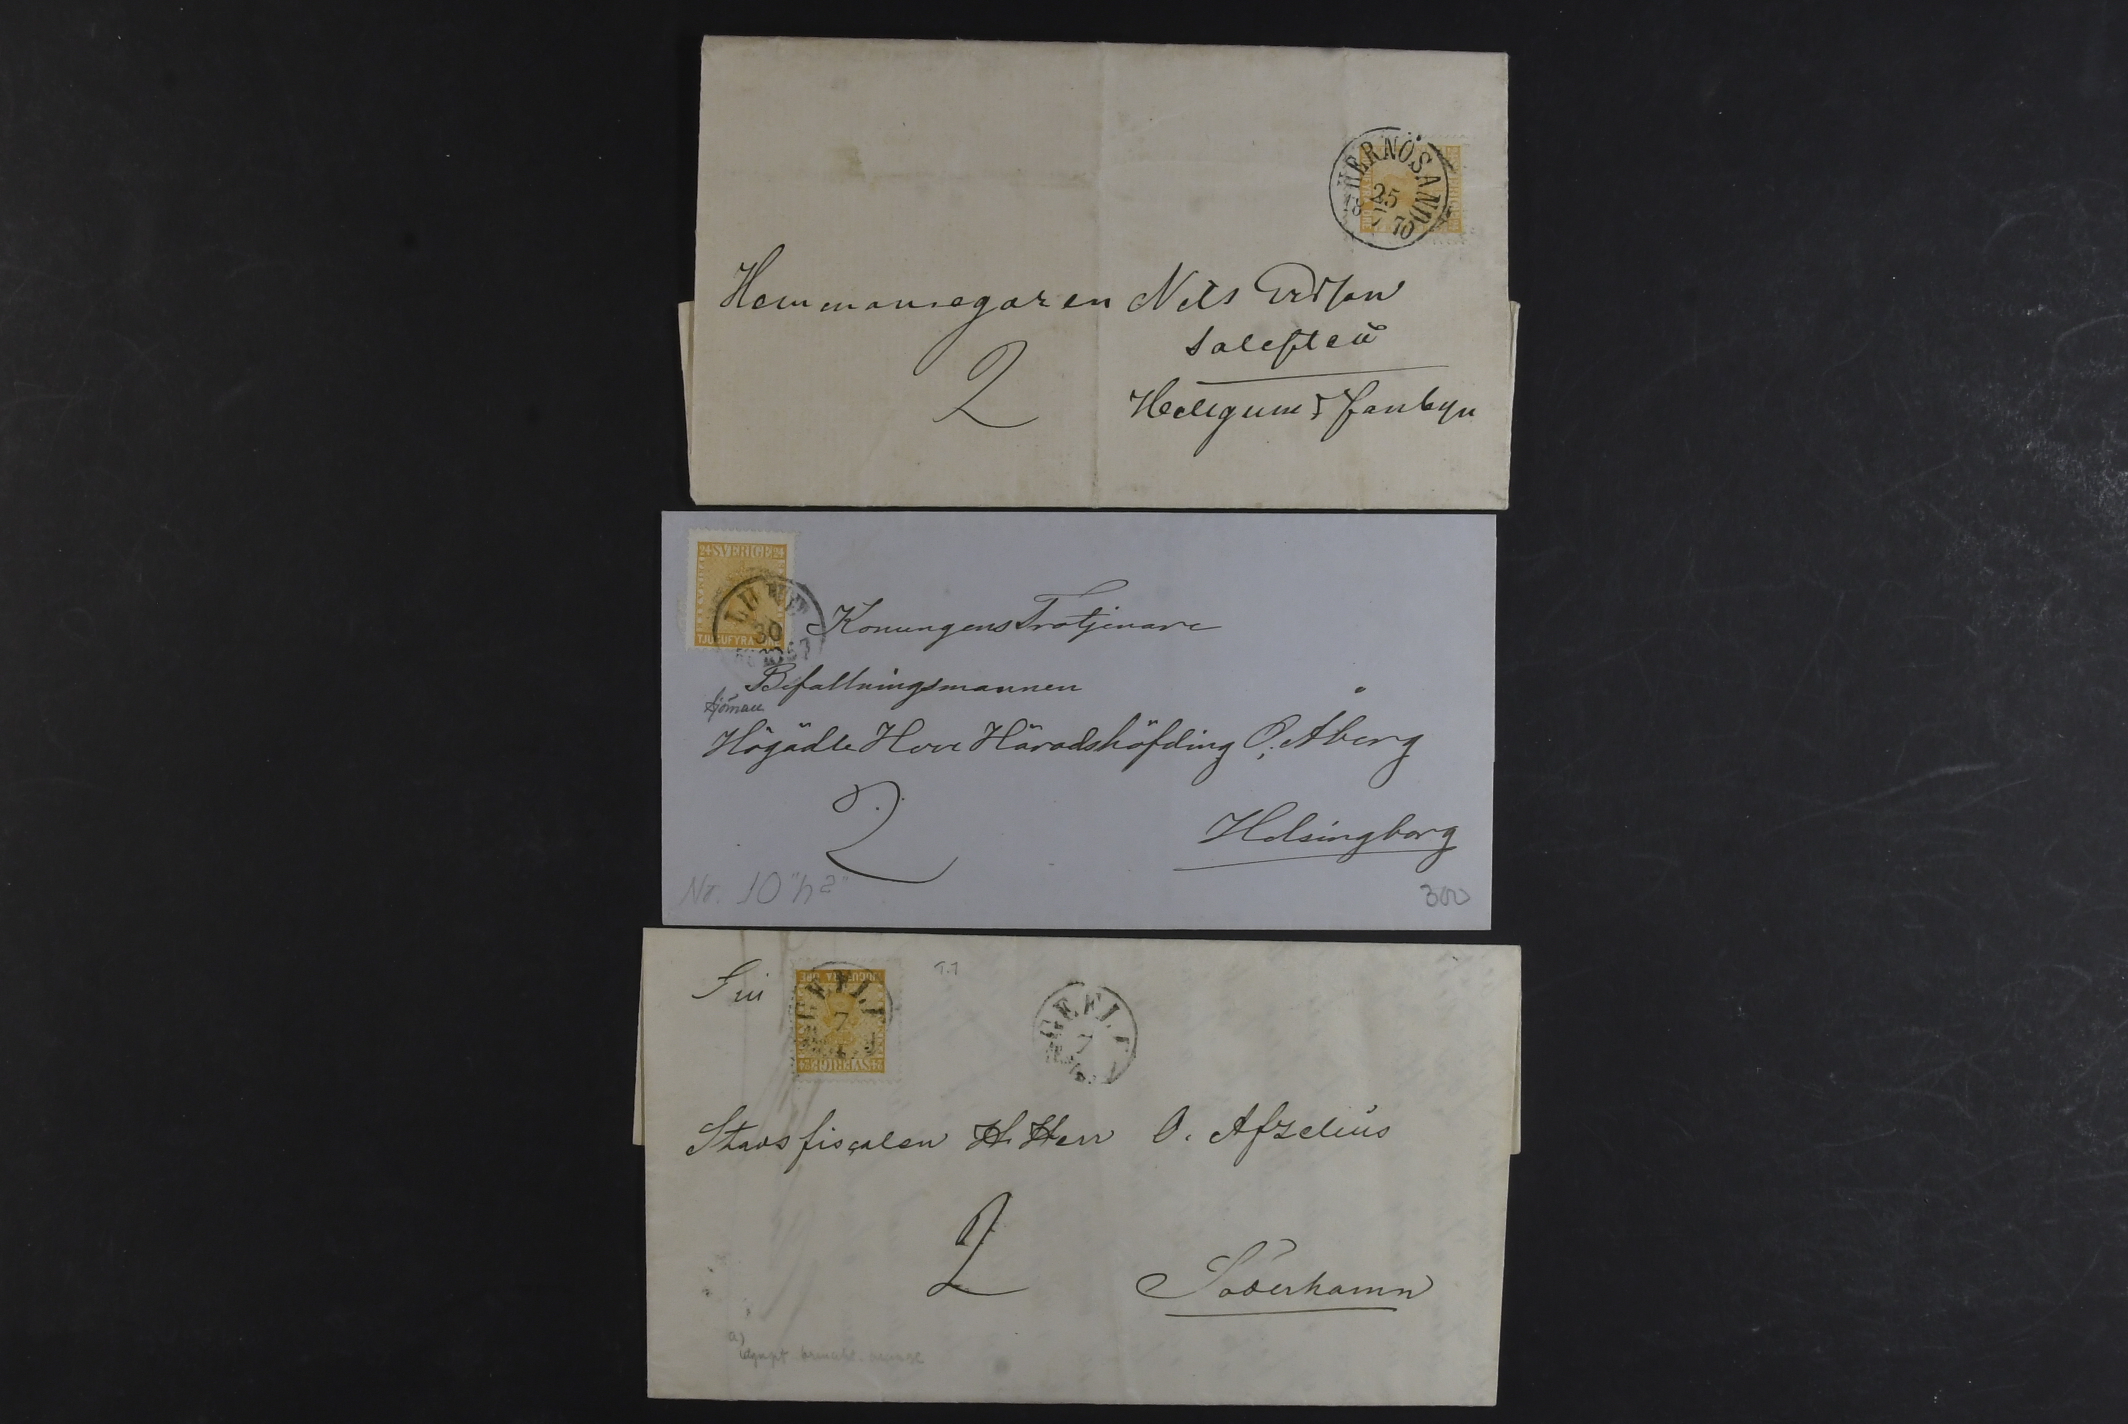 HERNÖSAND
25
18 7 70
Hemmansegaren Nils
2
SVERIGE
24 24
30
TJUGUFYRA ÖRE
Konungens Trotjenare
Befallningsmannen
Högädle Herr Häradshöfding O. Åberg
2
Helsingborg
Nr. 10 "h2"
300
T.1
TJUGUFYRA ÖRE
GEFLE
7
SVERIGE
GEFLE
7
Stadsfiscalen H Herr O. Afzelius
2
Söderhamn
a)